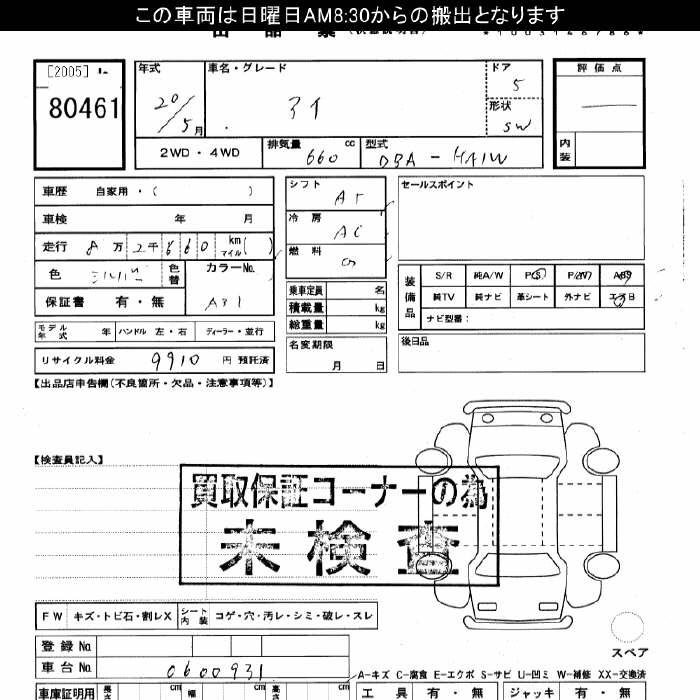 この車両は日曜日AM8:30からの搬出となります
[2005]
80461
年式
20/5月
車名・グレード
アイ
ドア
5
形状
SW
評価点
内装
2WD・4WD
排気量 660 cc
型式 DBA-HA1W
車歴 自家用・( )
車検 年 月
走行 8万2千660 km マイル( )
色 シルバー 色替
カラーNo. A31
保証書 有・無
モデル年式 年 ハンドル 左・右 ディーラー・並行
リサイクル料金 9910 円 預託済
シフト AT
冷房 AC
燃料
乗車定員 名
積載量 kg
総重量 kg
名変期限 月 日
セールスポイント
装備品
S/R 純A/W P/S P/W ABS
純TV 純ナビ 革シート 外ナビ エアB
ナビ型番:
後日品
【出品店申告欄(不良箇所・欠品・注意事項等)】
【検査員記入】
買取保証コーナーの為
未検査
FW キズ・トビ石・割レX シート内装 コゲ・穴・汚レ・シミ・破レ・スレ
スペア
登録No.
車台No. 0600931
A-キズ C-腐食 E-エクボ S-サビ U-凹ミ W-補修 XX-交換済
車庫証明用 長さ cm 幅 cm 高さ cm
工具 有・無 ジャッキ 有・無